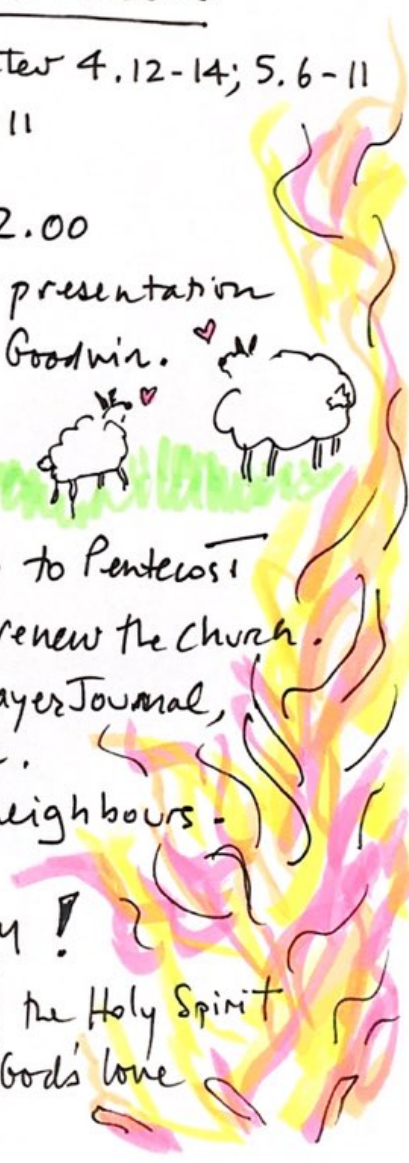 4.12-14; 5.6-11
11
2.00
presentation
Goodwin.
to Pentecost
renew the church.
Journal,
neighbours.
!
the Holy Spirit
God's love